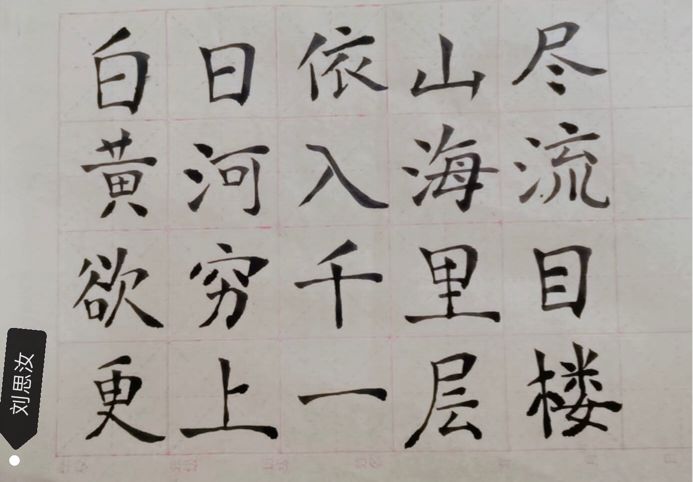 白日依山尽
黄河入海流
欲穷千里目
更上一层楼
刘思汝